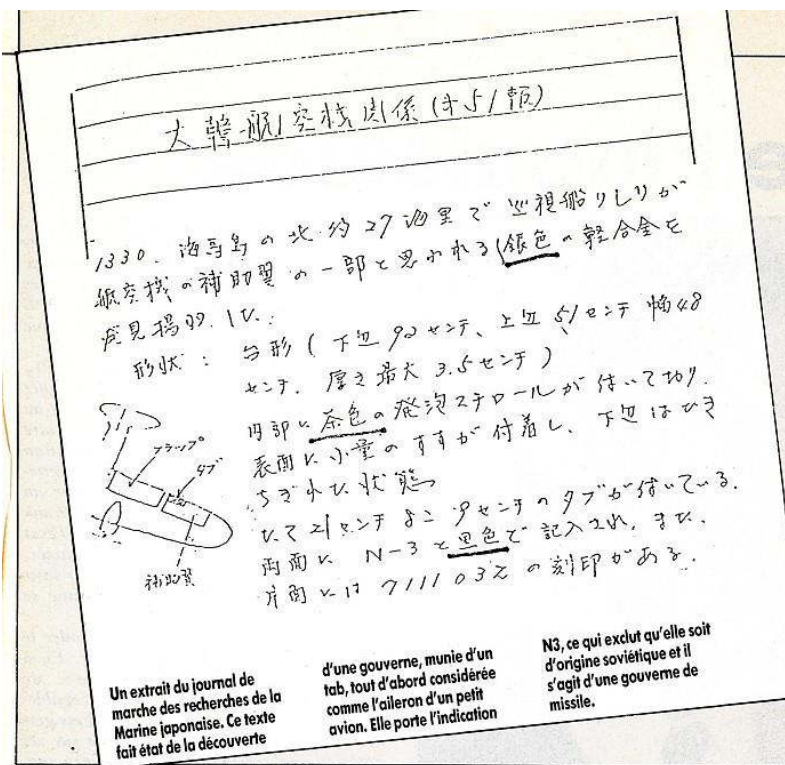 大韓航空機関係(第51報)
1330、海馬島の北約27海里で巡視船りしりが
航空機の補助翼の一部と思われる銀色の軽合金を
発見揚収した。
形状: 台形(下辺90センチ、上辺51センチ幅48
センチ、厚さ最大3.5センチ)
内部に茶色の発泡スチロールが付いており、
表面に小量のすすが付着し、下辺はひき
ちぎれた状態
たて21センチよこ9センチのタブが付いている。
両面に N-3と黒色で記入され、また、
片面には 711103Z の刻印がある。
フラップ
タブ
補助翼
Un extrait du journal de
marche des recherches de la
Marine japonaise. Ce texte
fait état de la découverte
d'une gouverne, munie d'un
tab, tout d'abord considérée
comme l'aileron d'un petit
avion. Elle porte l'indication
N3, ce qui exclut qu'elle soit
d'origine soviétique et il
s'agit d'une gouverne de
missile.